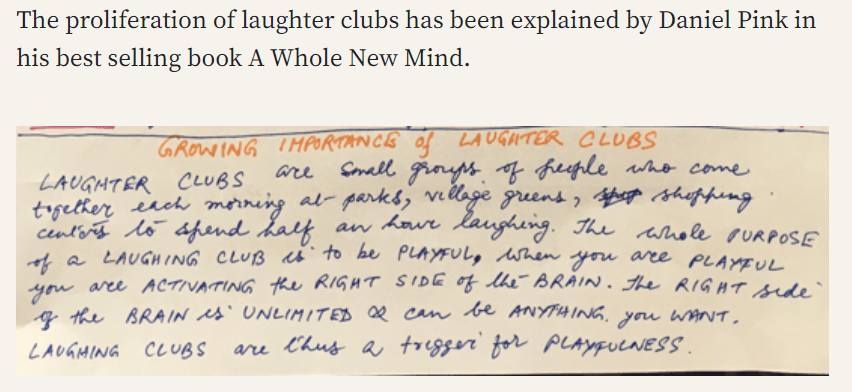 The proliferation of laughter clubs has been explained by Daniel Pink in
his best selling book A Whole New Mind.
GROWING IMPORTANCE of LAUGHTER CLUBS
LAUGHTER CLUBS are small groups of people who come
together each morning at parks, village greens, shopping
centers to spend half an hour laughing. The whole PURPOSE
of a LAUGHING CLUB is to be PLAYFUL, when you are PLAYFUL
you are ACTIVATING the RIGHT SIDE of the BRAIN. The RIGHT side
of the BRAIN is UNLIMITED & can be ANYTHING you WANT.
LAUGHING CLUBS are thus a trigger for PLAYFULNESS.